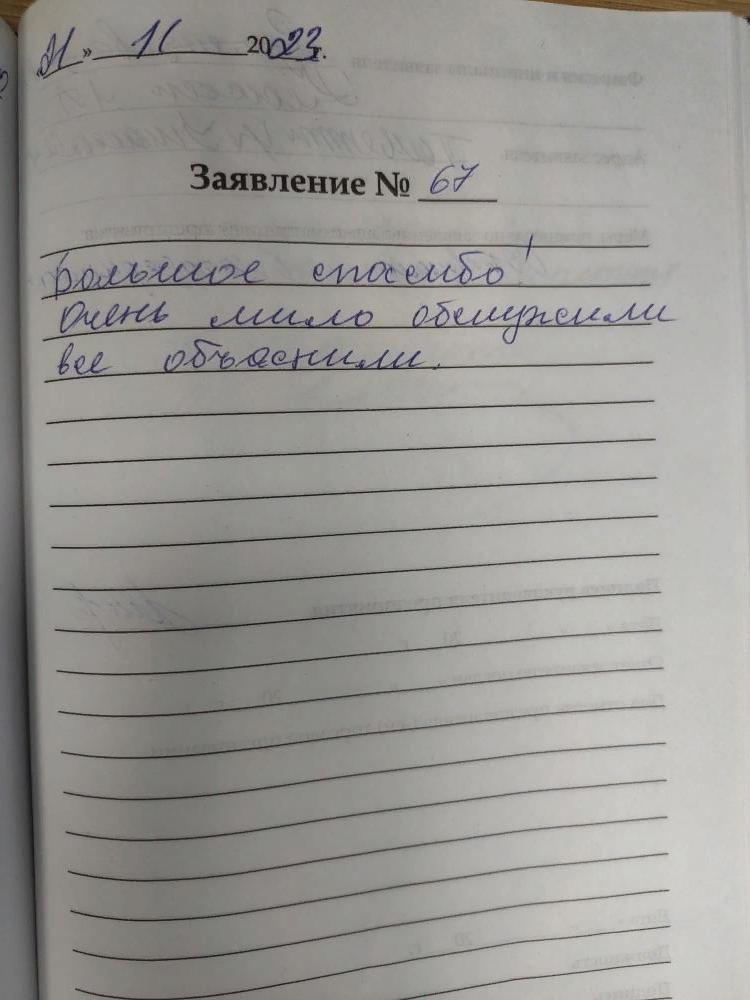 21» 11 2023г.
Заявление № 67
Большое спасибо!
Очень мило обслужили
все объяснили.